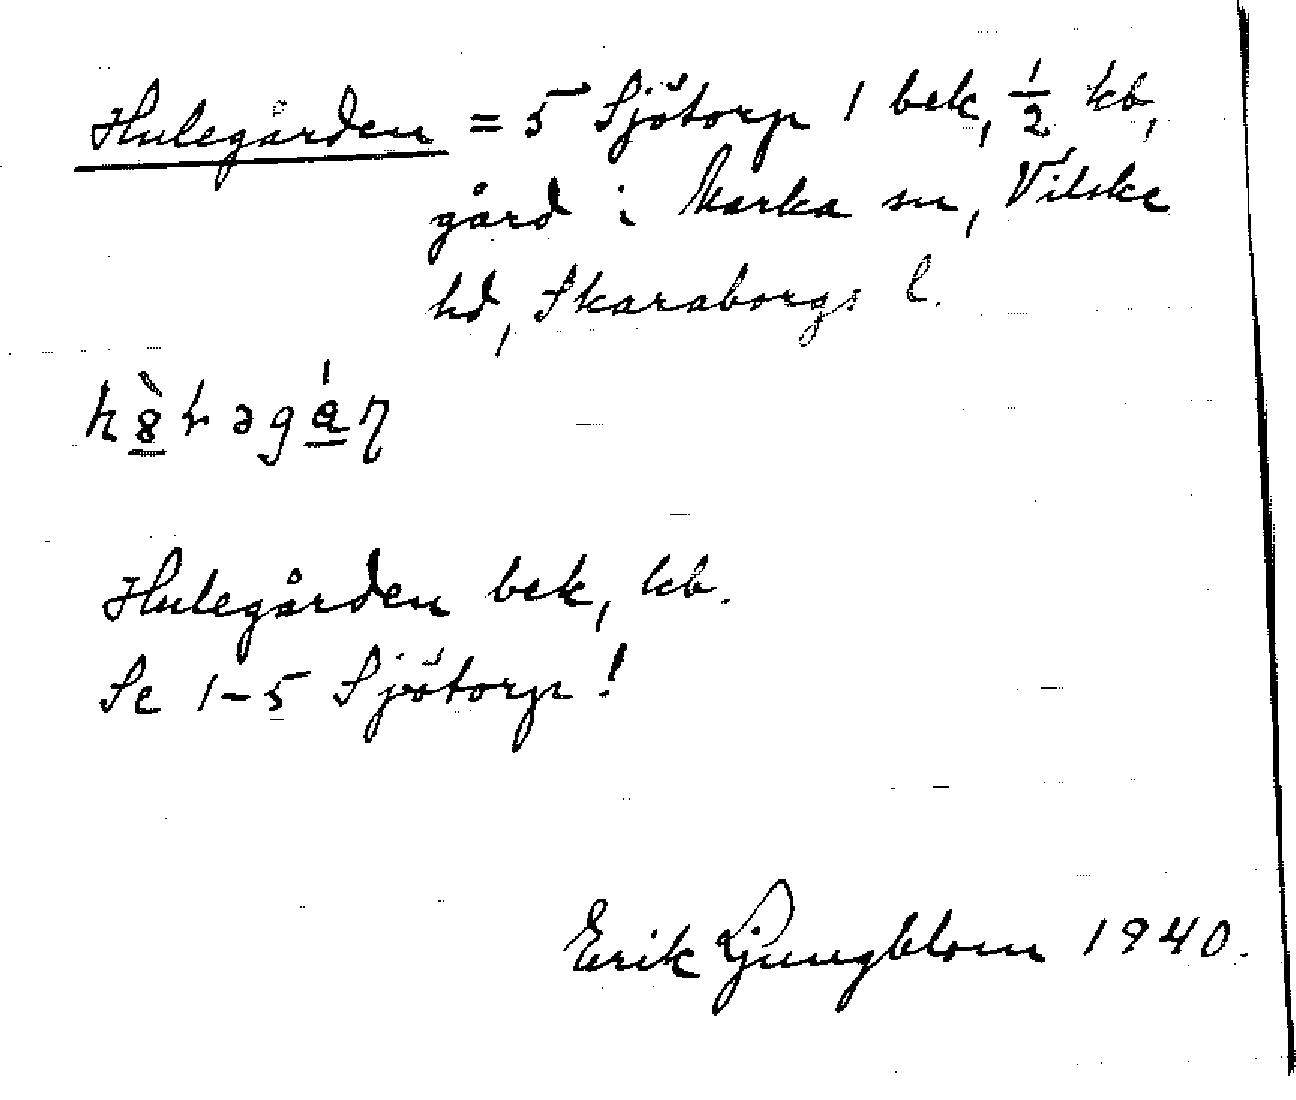 Hulegården = 5 Sjötorp 1 bek, 1/2 kb,
gård i Marka sn, Vilske
hd, Skaraborgs l.
Hulegården bek, kb.
Se 1-5 Sjötorp!
Erik Ljungblom 1940.